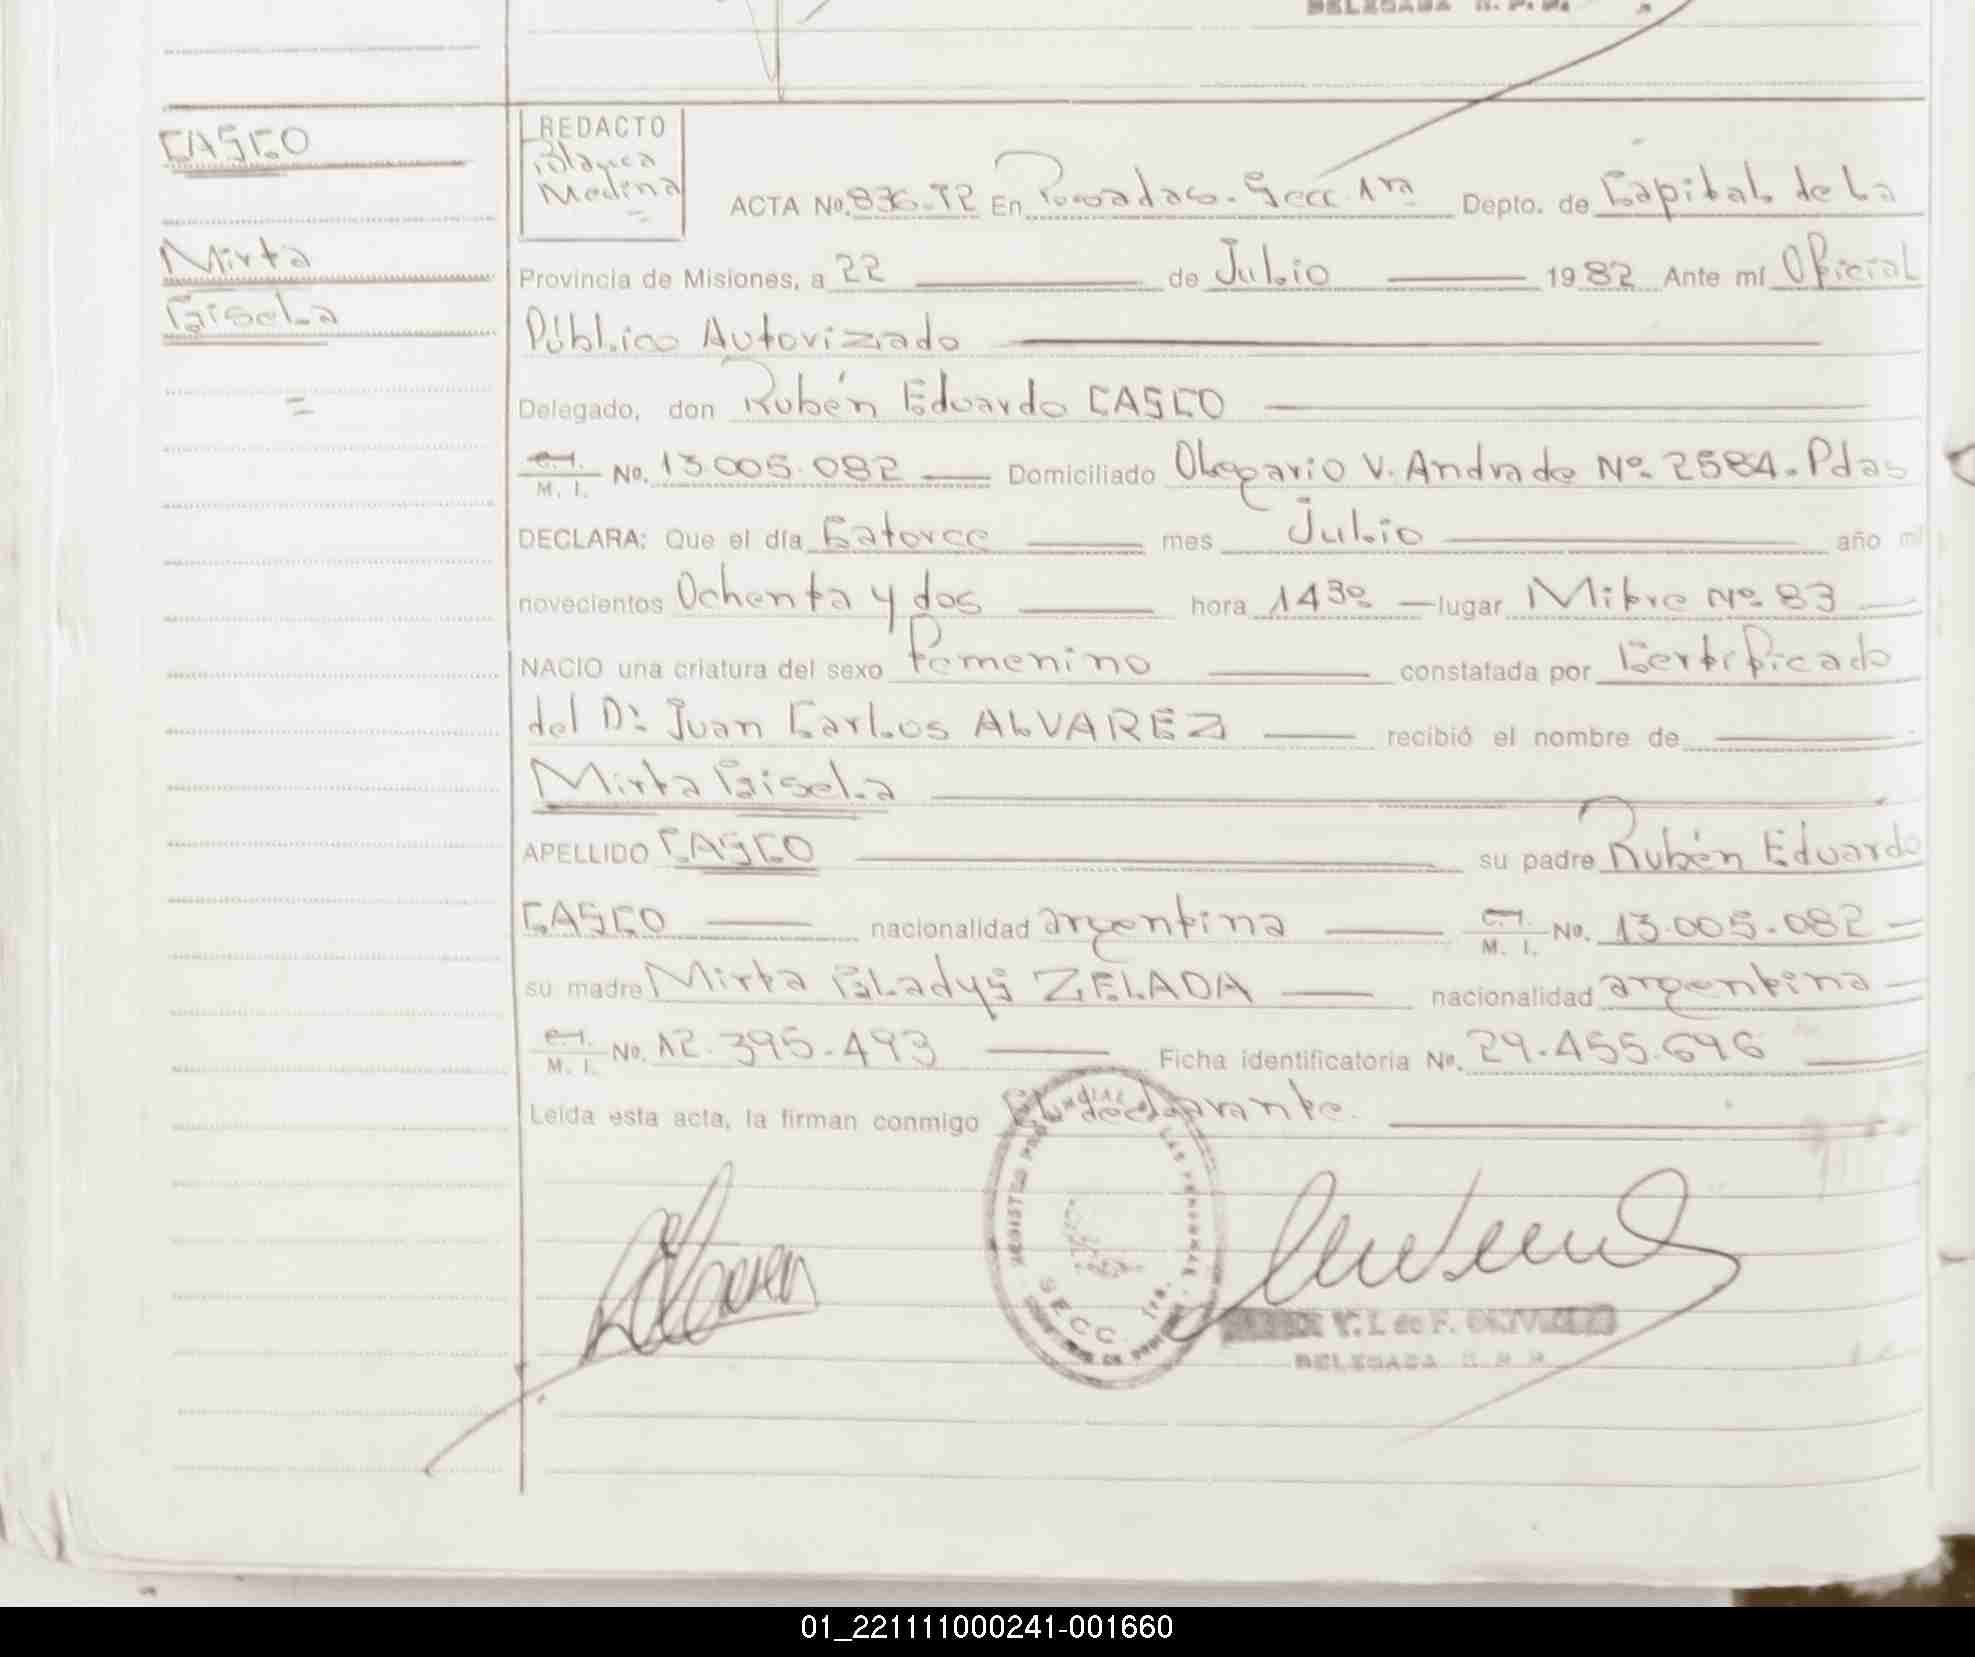 DELEGADA R. P. P.
CASCO
Mirta
Gisela
REDACTO
Blanca
Medina
ACTA No. 836-T2 En Posadas. Secc. 1ra Depto. de Capital de La
Provincia de Misiones, a 22 de Julio 1982 Ante mí Oficial
Público Autorizado
Delegado, don Rubén Eduardo CASCO
C.I. M. I. No. 13.005.082 Domiciliado Olegario V. Andrade Nº 2584. Pdas
DECLARA: Que el día Catorce mes Julio año mil
novecientos Ochenta y dos hora 1430 lugar Mitre Nº 83
NACIO una criatura del sexo Femenino constatada por Certificado
del Dr Juan Carlos ALVAREZ recibió el nombre de
Mirta Gisela
APELLIDO CASCO su padre Rubén Eduardo
CASCO nacionalidad argentina C.I. M. I. No. 13.005.082
su madre Mirta Gladys ZELADA nacionalidad argentina
C.I. M. I. No. 12.395.493 Ficha identificatoria No. 29.455.696
Leída esta acta, la firman conmigo El declarante.
REGISTRO PROVINCIAL DE LAS PERSONAS
SECC. 1ra.
V. I. de F.
DELEGADA R. P. P.
01_221111000241-001660